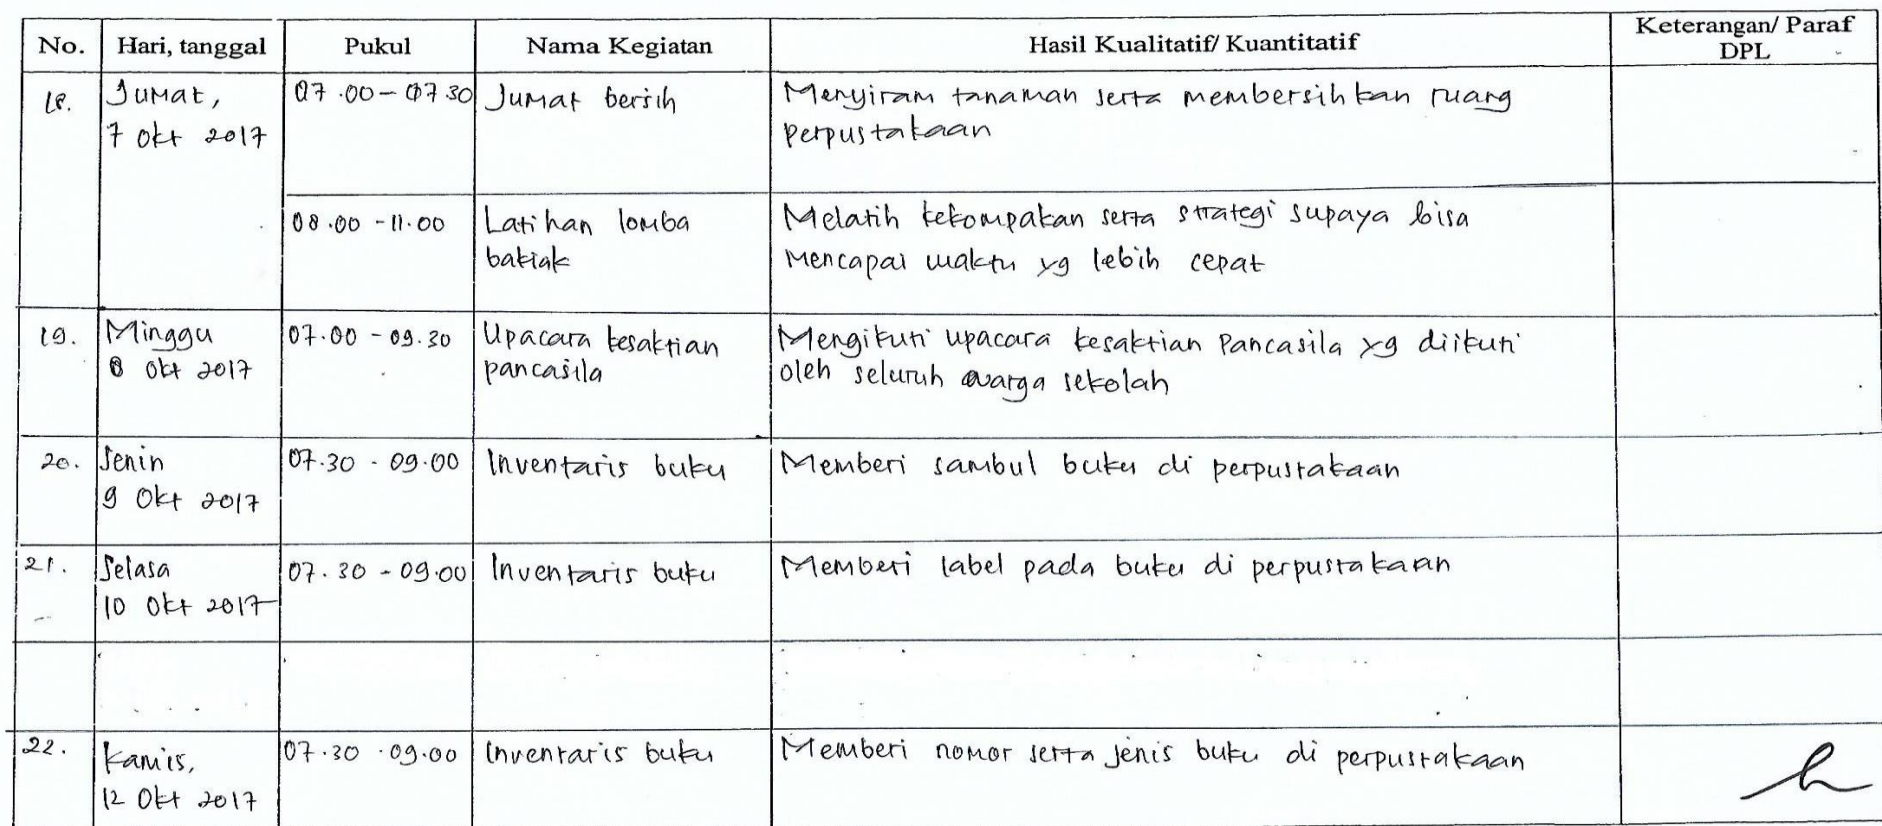 No. Hari, tanggal Pukul Nama Kegiatan Hasil Kualitatif/ Kuantitatif Keterangan/ Paraf
DPL
18. Jumat, 07.00 - 07 30 Jumat bersih Menyiram tanaman serta membersihkan ruang
7 Okt 2017 perpustakaan
08.00 - 11.00 Latihan lomba Melatih kekompakan serta strategi supaya bisa
bakiak Mencapai waktu yg lebih cepat
19. Minggu 07.00 - 09.30 Upacara kesaktian Mengikuti upacara kesaktian Pancasila yg diikuti
8 Okt 2017 pancasila oleh seluruh warga sekolah
20. Senin 07.30 - 09.00 Inventaris buku Memberi sambul buku di perpustakaan
9 Okt 2017
21. Selasa 07.30 - 09.00 Inventaris buku Memberi label pada buku di perpustakaan
10 Okt 2017
22. Kamis, 07.30 - 09.00 Inventaris buku Memberi nomor serta jenis buku di perpustakaan
12 Okt 2017